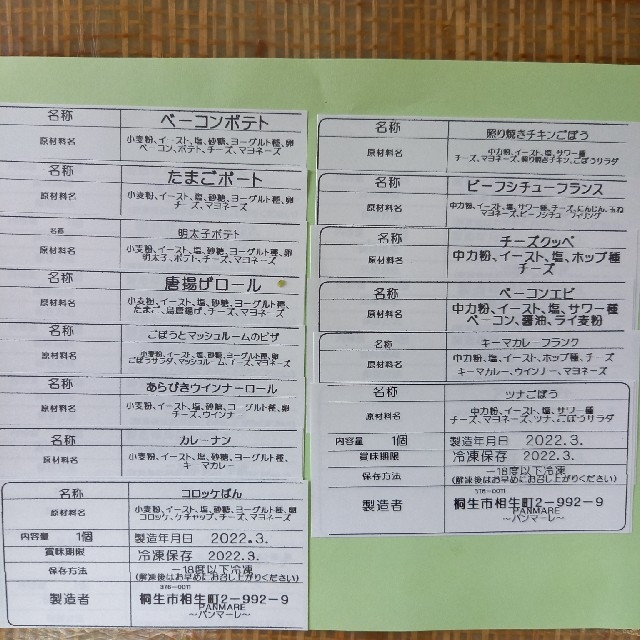 名称 ベーコンポテト
原材料名 小麦粉、イースト、塩、砂糖、ヨーグルト種、卵
ベーコン、ポテト、チーズ、マヨネーズ
名称 たまごボート
原材料名 小麦粉、イースト、塩、砂糖、ヨーグルト種、卵
チーズ、マヨネーズ
名称 明太子ポテト
原材料名 小麦粉、イースト、塩、砂糖、ヨーグルト種、卵
明太子、ポテト、チーズ、マヨネーズ
名称 唐揚げロール
原材料名 小麦粉、イースト、塩、砂糖、ヨーグルト種、
たまご、鳥唐揚げ、チーズ、マヨネーズ
名称 ごぼうとマッシュルームのピザ
原材料名 小麦粉、イースト、塩、砂糖、ヨーグルト種、卵
ごぼうサラダ、マッシュルーム、チーズ、マヨネーズ
名称 あらびきウインナーロール
原材料名 小麦粉、イースト、塩、砂糖、ヨーグルト種、卵
チーズ、ウインナー
名称 カレーナン
原材料名 小麦粉、イースト、塩、砂糖、ヨーグルト種、
キーマカレー
名称 コロッケぱん
原材料名 小麦粉、イースト、塩、砂糖、ヨーグルト種、卵
コロッケ、ケチャップ、チーズ、マヨネーズ
内容量 1個 製造年月日 2022.3.
賞味期限 冷凍保存 2022.3.
保存方法 −18度以下冷凍
(解凍後はお早めにお召し上がりください)
製造者 376-0011
桐生市相生町2-992-9
PANMARE
～パンマーレ～
名称 照り焼きチキンごぼう
原材料名 中力粉、イースト、塩、サワー種
チーズ、マヨネーズ、照り焼きチキン、ごぼうサラダ
名称 ビーフシチューフランス
原材料名 中力粉、イースト、塩、サワー種、チーズ、にんじん、玉ね
マヨネーズ、ビーフシチュー フィリング
名称 チーズクッペ
原材料名 中力粉、イースト、塩、ホップ種
チーズ
名称 ベーコンエピ
原材料名 中力粉、イースト、塩、サワー種
ベーコン、醤油、ライ麦粉
名称 キーマカレーフランク
原材料名 中力粉、塩、イースト、ホップ種、チーズ
キーマカレー、ウインナー、マヨネーズ
名称 ツナごぼう
原材料名 中力粉、イースト、塩、サワー種
チーズ、マヨネーズ、ツナ、ごぼうサラダ
内容量 1個 製造年月日 2022.3.
賞味期限 冷凍保存 2022.3.
保存方法 −18度以下冷凍
(解凍後はお早めにお召し上がりください)
製造者 376-0011
桐生市相生町2-992-9
PANMARE
～パンマーレ～